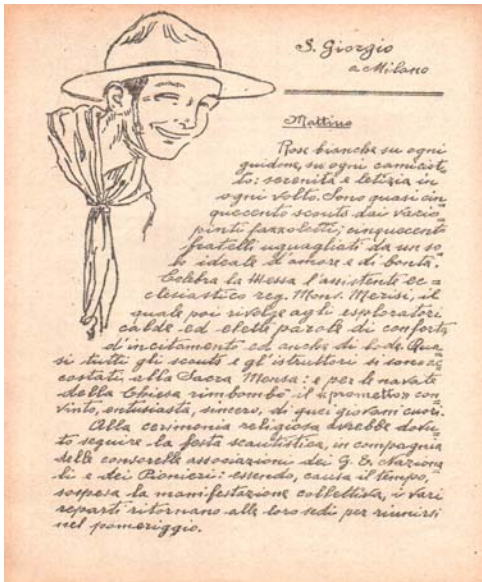 S. Giorgio
a Milano
Mattino
Rose bianche su ogni
guidone, su ogni camiciot=
to: serenità e letizia in
ogni volto. Sono quasi cin=
quecento scouts dai vario=
pinti fazzoletti; cinquecento
fratelli uguagliati da un so=
lo ideale d'amore e di bontà.
Celebra la Messa l'assistente ec=
clesiastico reg. Mons. Merisi, il
quale poi rivolge agli esploratori
calde ed elette parole di conforto,
d'incitamento ed anche di lode. Qua=
si tutti gli scouts e gl'istruttori si sono ac=
costati alla Sacra Mensa: e per le navate
della Chiesa rimbombò il «prometto» con=
vinto, entusiasta, sincero, di quei giovani cuori.
Alla cerimonia religiosa avrebbe dovu=
to seguire la festa scautistica, in compagnia
delle consorelle associazioni dei G. E. Naziona=
li e dei Pionieri: essendo, causa il tempo,
sospesa la manifestazione collettiva, i vari
reparti ritornano alle loro sedi per riunirsi
nel pomeriggio.